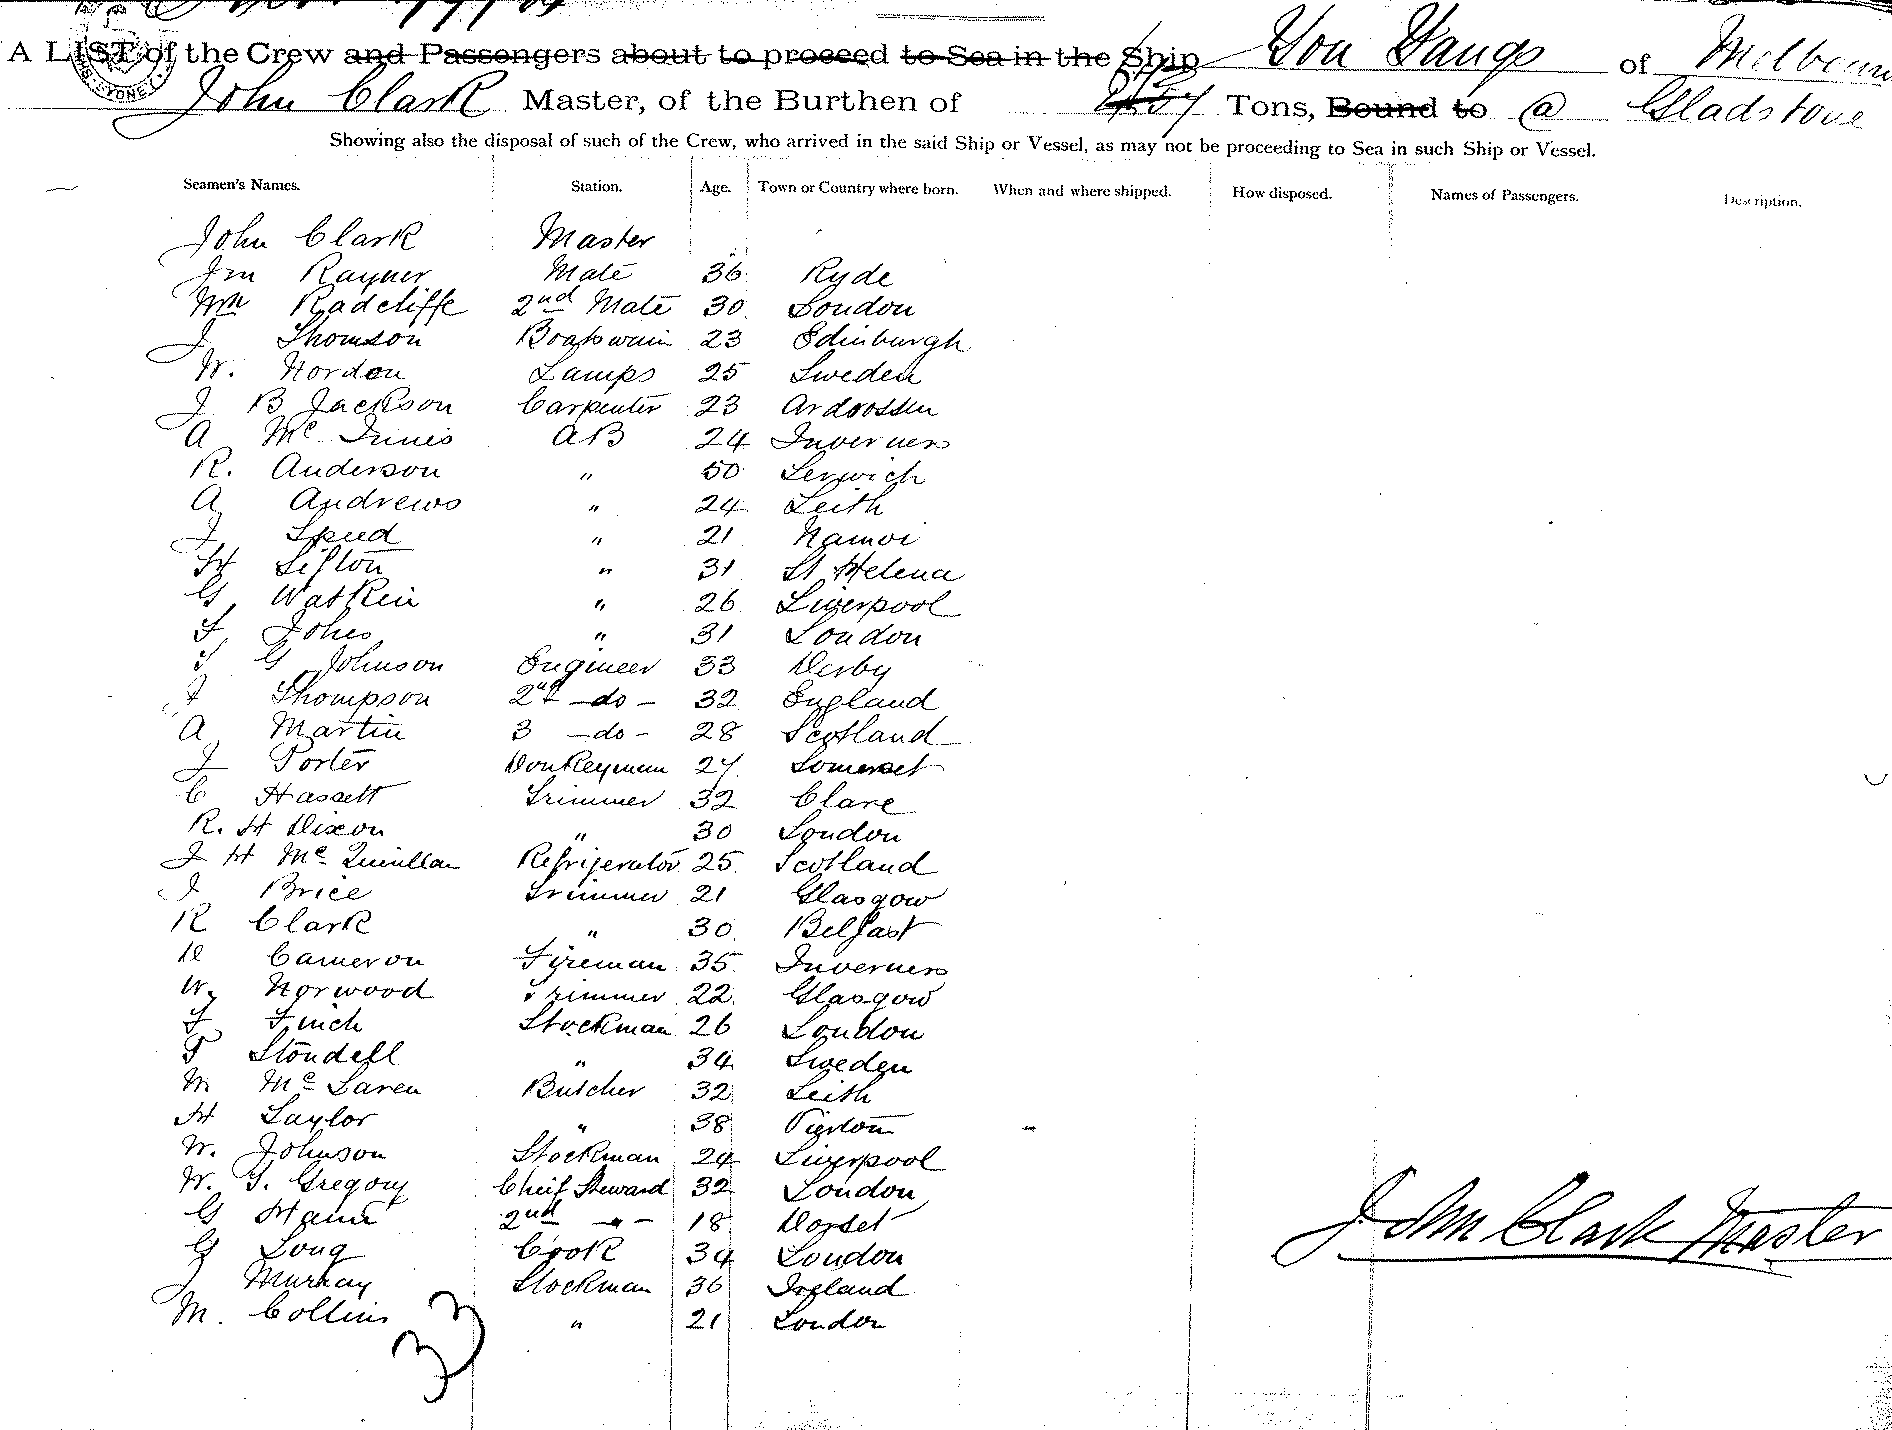 A LIST of the Crew and Passengers about to proceed to Sea in the Ship You Yangs of Melbourne
John Clark Master, of the Burthen of Tons, Bound to @ Gladstone
Showing also the disposal of such of the Crew, who arrived in the said Ship or Vessel, as may not be proceeding to Sea in such Ship or Vessel.
Seamen's Names. Station. Age. Town or Country where born. When and where shipped. How disposed. Names of Passengers. Description.
John Clark Master
Jm Rayner Mate 36 Ryde
Wm Radcliffe 2nd Mate 30 London
J Thomson Boatswain 23 Edinburgh
W. Nordon Lamps 25 Sweden
J B Jackson Carpenter 23 Ardrossen
A Mc Innis AB 24 Inverness
R. Anderson " 50 Lerwich
A Andrews " 24 Leith
J Speed " 21 Namoi
H Sefton " 31 St Helena
G Watkin " 26 Liverpool
F Jones " 31 London
T G Johnson Engineer 33 Derby
J Thompson 2nd -do- 32 England
A Martin 3 -do- 28 Scotland
J Porter Donkeyman 27 Somerset
C Hassett Trimmer 32 Clare
R. H Dixon " 30 London
J H Mc Quillan Refrigerator 25 Scotland
J Brice Trimmer 21 Glasgow
R Clark " 30 Belfast
D Cameron Fireman 35 Inverness
W. Norwood Trimmer 22 Glasgow
F Finch Stockman 26 London
T Stondell " 34 Sweden
M Mc Laren Butcher 32 Leith
H Taylor " 38
W. Johnson Stockman 24 Liverpool
W. T. Gregory Cheif Steward 32 London
G Hann 2nd -"- 18 Dorset
G Long Cook 34 London
J Murray Stockman 36 Ireland
M. Collins " 21 London
33
John Clark Master